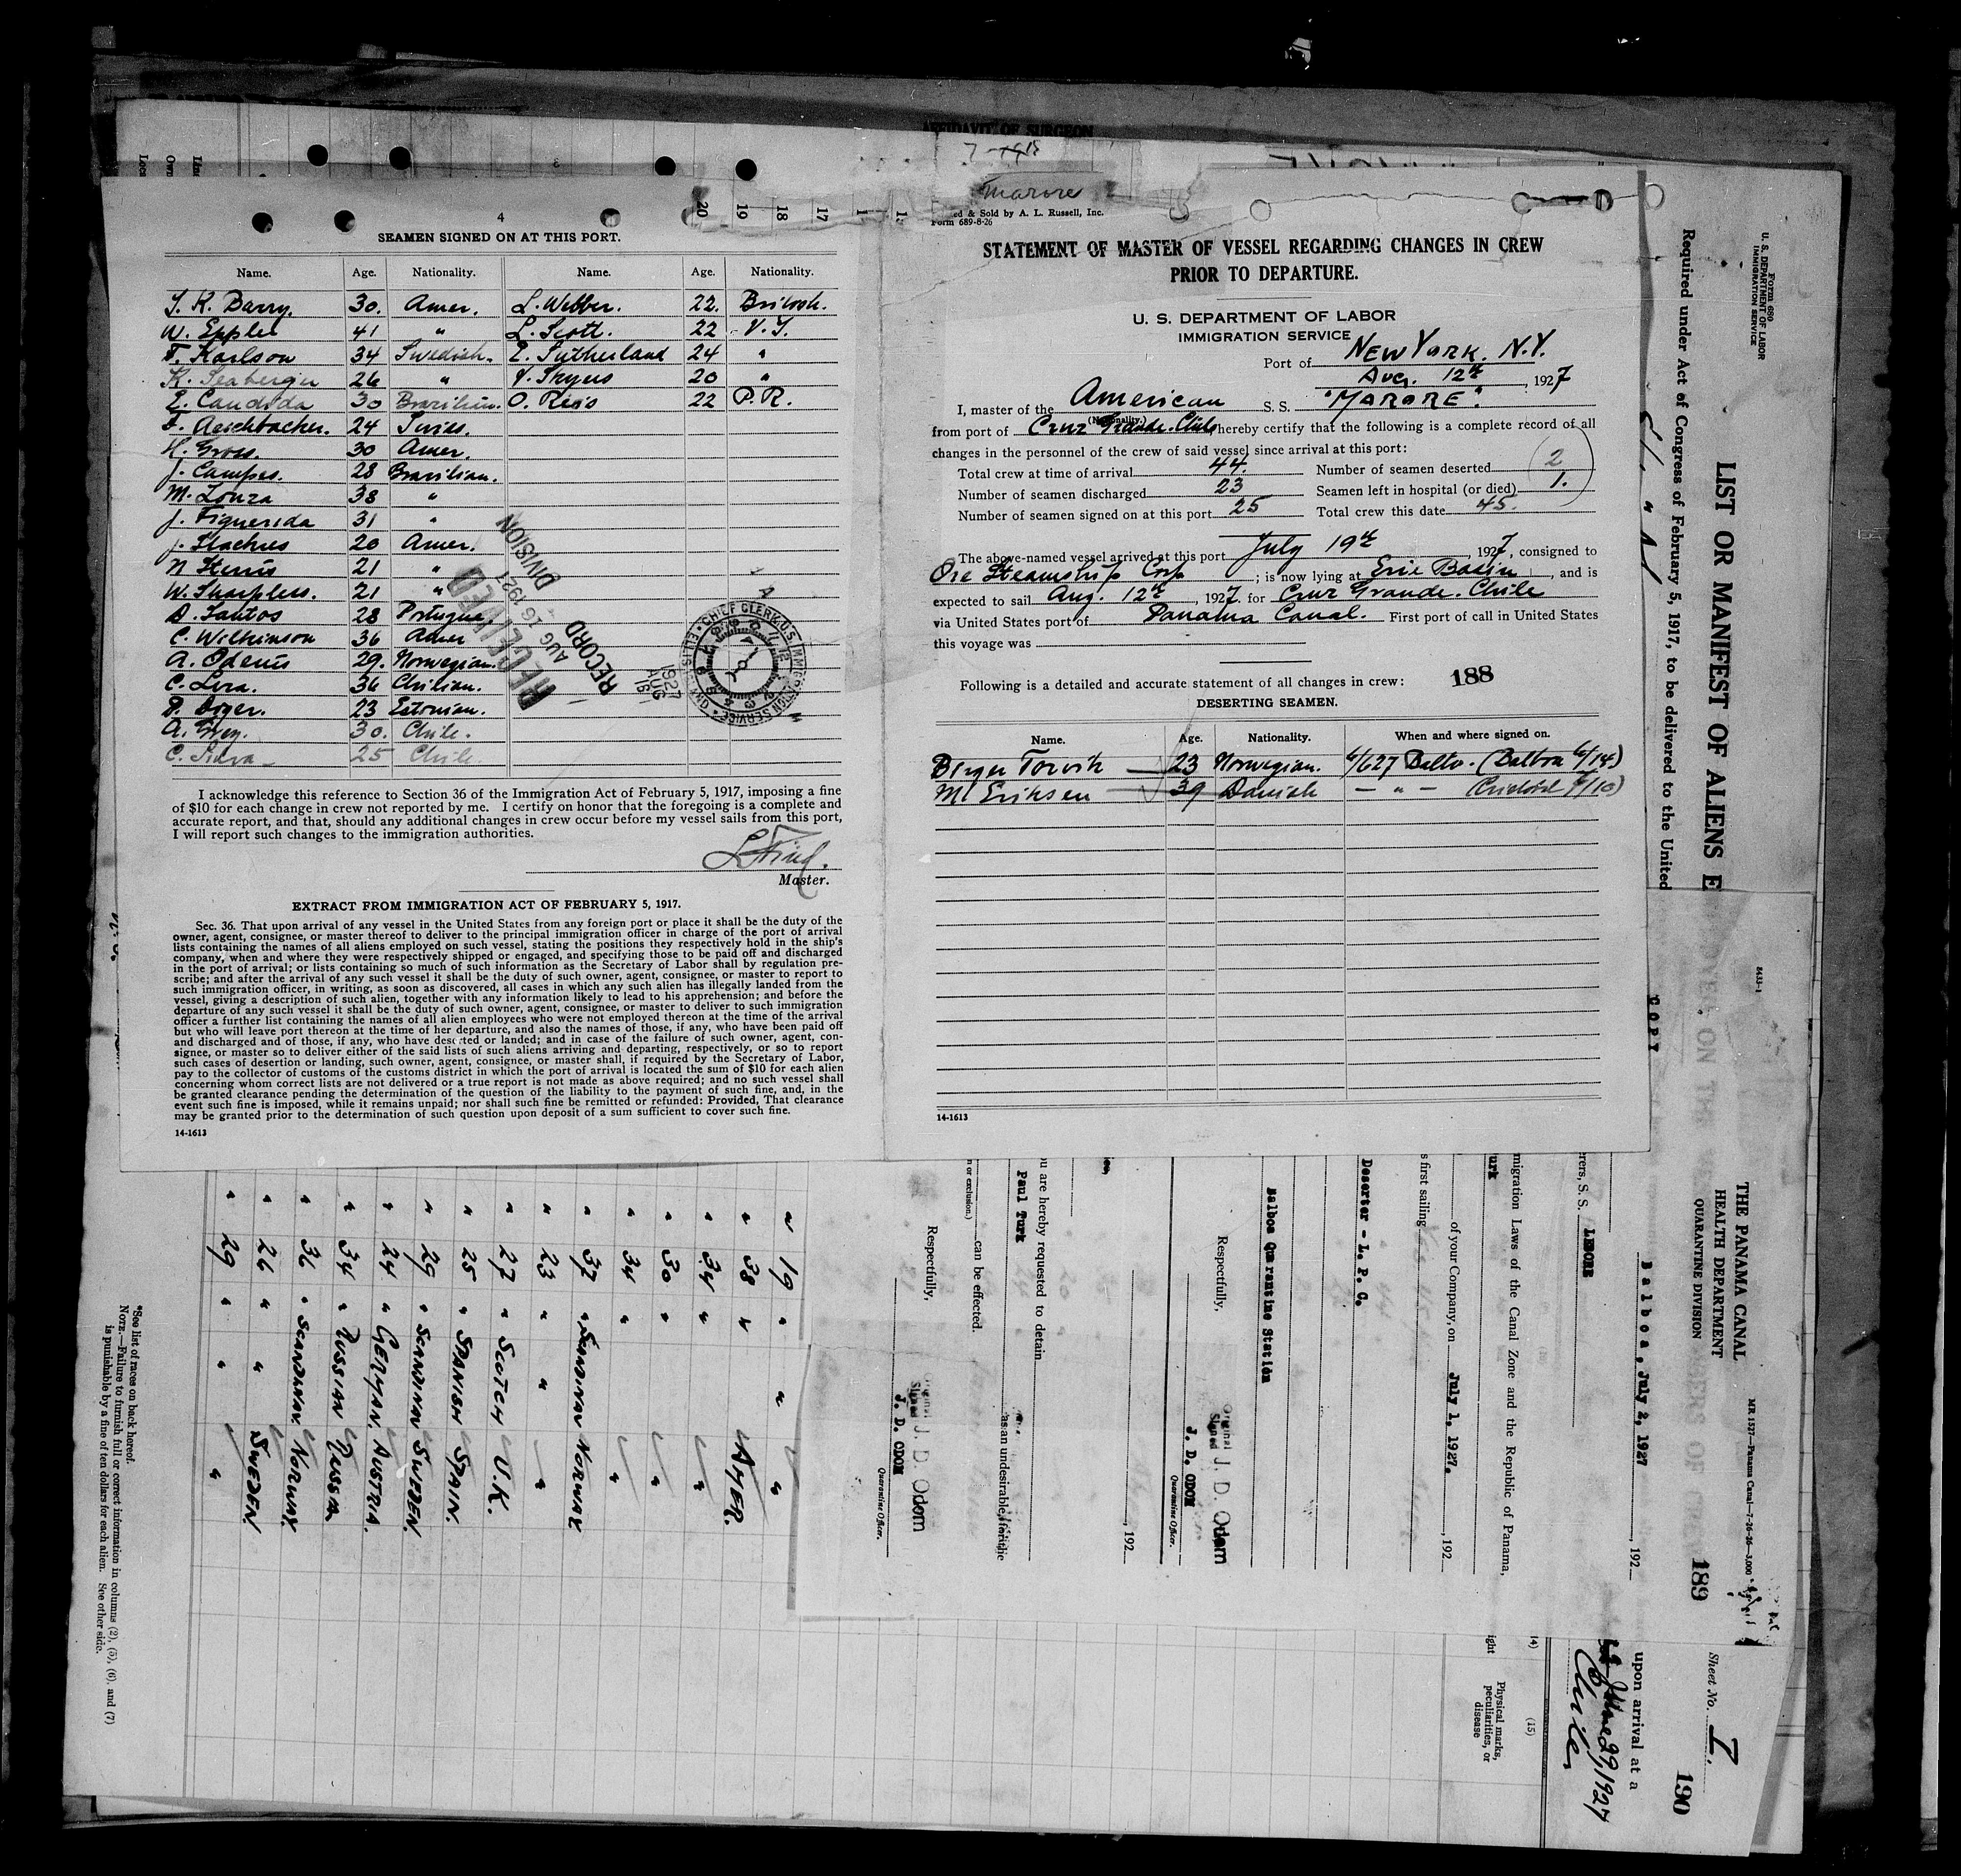 AFFIDAVIT OF SURGEON
Marore
4
SEAMEN SIGNED ON AT THIS PORT.
Name. Age. Nationality. Name. Age. Nationality.
J. K. Barry. 30. Amer. L. Webber. 22. British.
W. Eppler 41 " L. Scott. 22 V. I.
F. Karlson 34 Swedish. E. Sutherland 24 "
K. Seaberger 26 " 20 "
E. Candida 30 Brazilian. O. Reos 22 P.R.
F. Aeschbacher. 24 Swiss.
H. Gross. 30 Amer.
J. Campos. 28 Brazilian.
M. Louza 38 "
J. Figuerida 31 "
J. Stachus 20 Amer.
N 21 "
W. Sharpless. 21 "
D. Santos 28 Portugue
C. Wilkinson 36 Amer
A. Odenis 29. Norwegian.
C. Lira. 36 Chilian.
23 Estonian.
A. Grey. 30. Chile.
C. Silva 25 Chile
RECEIVED
AUG 16 1927
RECORD DIVISION
CHIEF CLERK, U.S. IMMIGRATION SERVICE
1927 AUG 16
I acknowledge this reference to Section 36 of the Immigration Act of February 5, 1917, imposing a fine
of $10 for each change in crew not reported by me. I certify on honor that the foregoing is a complete and
accurate report, and that, should any additional changes in crew occur before my vessel sails from this port,
I will report such changes to the immigration authorities.
Master.
EXTRACT FROM IMMIGRATION ACT OF FEBRUARY 5, 1917.
Sec. 36. That upon arrival of any vessel in the United States from any foreign port or place it shall be the duty of the
owner, agent, consignee, or master thereof to deliver to the principal immigration officer in charge of the port of arrival
lists containing the names of all aliens employed on such vessel, stating the positions they respectively hold in the ship's
company, when and where they were respectively shipped or engaged, and specifying those to be paid off and discharged
in the port of arrival; or lists containing so much of such information as the Secretary of Labor shall by regulation pre-
scribe; and after the arrival of any such vessel it shall be the duty of such owner, agent, consignee, or master to report to
such immigration officer, in writing, as soon as discovered, all cases in which any such alien has illegally landed from the
vessel, giving a description of such alien, together with any information likely to lead to his apprehension; and before the
departure of any such vessel it shall be the duty of such owner, agent, consignee, or master to deliver to such immigration
officer a further list containing the names of all alien employees who were not employed thereon at the time of the arrival
but who will leave port thereon at the time of her departure, and also the names of those, if any, who have been paid off
and discharged and of those, if any, who have deserted or landed; and in case of the failure of such owner, agent, con-
signee, or master so to deliver either of the said lists of such aliens arriving and departing, respectively, or so to report
such cases of desertion or landing, such owner, agent, consignee, or master shall, if required by the Secretary of Labor,
pay to the collector of customs of the customs district in which the port of arrival is located the sum of $10 for each alien
concerning whom correct lists are not delivered or a true report is not made as above required; and no such vessel shall
be granted clearance pending the determination of the question of the liability to the payment of such fine, and, in the
event such fine is imposed, while it remains unpaid; nor shall such fine be remitted or refunded: Provided, That clearance
may be granted prior to the determination of such question upon deposit of a sum sufficient to cover such fine.
14-1613
ed & Sold by A. L. Russell, Inc.
Form 689-8-26
STATEMENT OF MASTER OF VESSEL REGARDING CHANGES IN CREW
PRIOR TO DEPARTURE.
U. S. DEPARTMENT OF LABOR
IMMIGRATION SERVICE
Port of New York. N.Y.
Aug. 12th, 1927
I, master of the American S. S. "MARORE".
(Nationality.)
from port of Cruz Grande. Chile, hereby certify that the following is a complete record of all
changes in the personnel of the crew of said vessel since arrival at this port:
Total crew at time of arrival 44. Number of seamen deserted 2
Number of seamen discharged 23 Seamen left in hospital (or died) 1.
Number of seamen signed on at this port 25 Total crew this date 45.
The above-named vessel arrived at this port July 19th, 1927, consigned to
Ore Steamship Corp; is now lying at Erie Basin, and is
expected to sail Aug. 12th, 1927. for Cruz Grande. Chile
via United States port of Panama Canal. First port of call in United States
this voyage was
Following is a detailed and accurate statement of all changes in crew: 188
DESERTING SEAMEN.
Name. Age. Nationality. When and where signed on.
Birger Torvik 23 Norwegian. 6/627 Balto. (Balboa 6/14)
M. Eriksen 39 Danish — " — Cristobal
14-1613
Form 680
U. S. DEPARTMENT OF LABOR
IMMIGRATION SERVICE
LIST OR MANIFEST OF ALIENS E
Required under Act of Congress of February 5, 1917, to be delivered to the United
COPY
THE PANAMA CANAL
HEALTH DEPARTMENT
QUARANTINE DIVISION
MR 1527—Panama Canal—7-26-26—3,000
189
Balboa, July 2, 1927, 192
rers, S. S. LEBORE
migration Laws of the Canal Zone and the Republic of Panama,
urk
of your Company, on July 1, 1927., 192
s first sailing
Deserter - L. P. C.
Balboa Quarantine Station
Respectfully,
Original Signed J. D. Odom
J. D. ODOM
Quarantine Officer.
, 192
ou are hereby requested to detain
Paul Turk
as an undesirable
n or exclusion.) can be effected.
Respectfully,
Original Signed J. D. Odom
J. D. ODOM
Quarantine Officer.
Sheet No. 1.
190
upon arrival at a
June 29, 1927
Chile
(14)
(15)
Physical marks, peculiarities, or disease
" 19 " " "
" 38 " AMER.
" 34 " "
" 30 " "
" 34 " "
" 37 " SCANDINAV NORWAY
" 23 " " "
" 27 " SCOTCH U.K.
" 25 " SPANISH SPAIN.
" 29 " SCANDINAV SWEDEN.
" 24 " GERMAN. AUSTRIA.
" 34 " RUSSIAN RUSSIA
" 36 " SCANDINAV. NORWAY.
" 26 " " SWEDEN.
" 29 " " "
*See list of races on back hereof.
NOTE.—Failure to furnish full or correct information in columns (2), (5), (6), and (7)
is punishable by a fine of ten dollars for each alien. See other side.